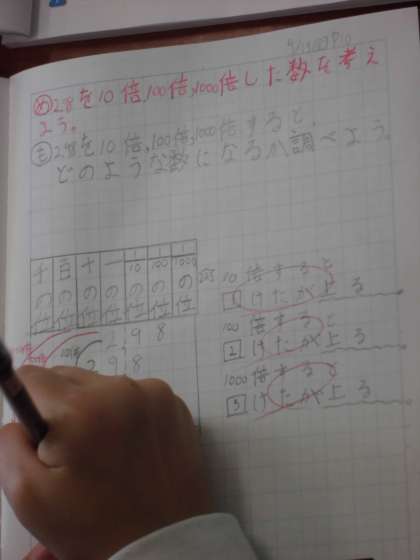 め 2.98を10倍,100倍,1000倍した数を考え
よう。
も 2.98を10倍,100倍,1000倍すると、
どのような数になるか調べよう。
千の位 百の位 十の位 一の位 1/10の位 1/100の位 1/1000の位
2.98
29.8
10倍すると
1けたが上る
100倍すると
2けたが上る
1000倍すると
3けたが上る